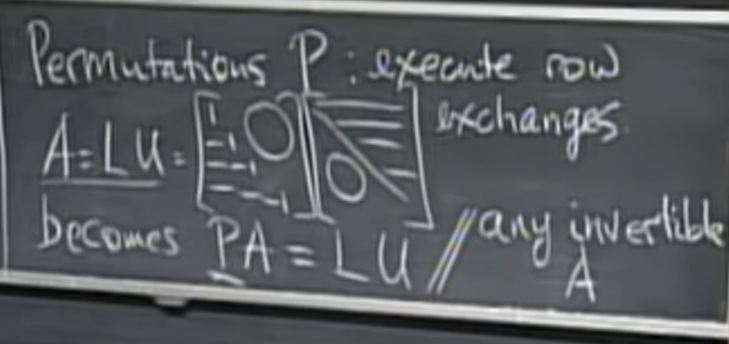 Permutations P : execute row
exchanges.
A = LU = [1 0
- - 1
- - - 1] [0]
becomes PA = LU // any invertible
A